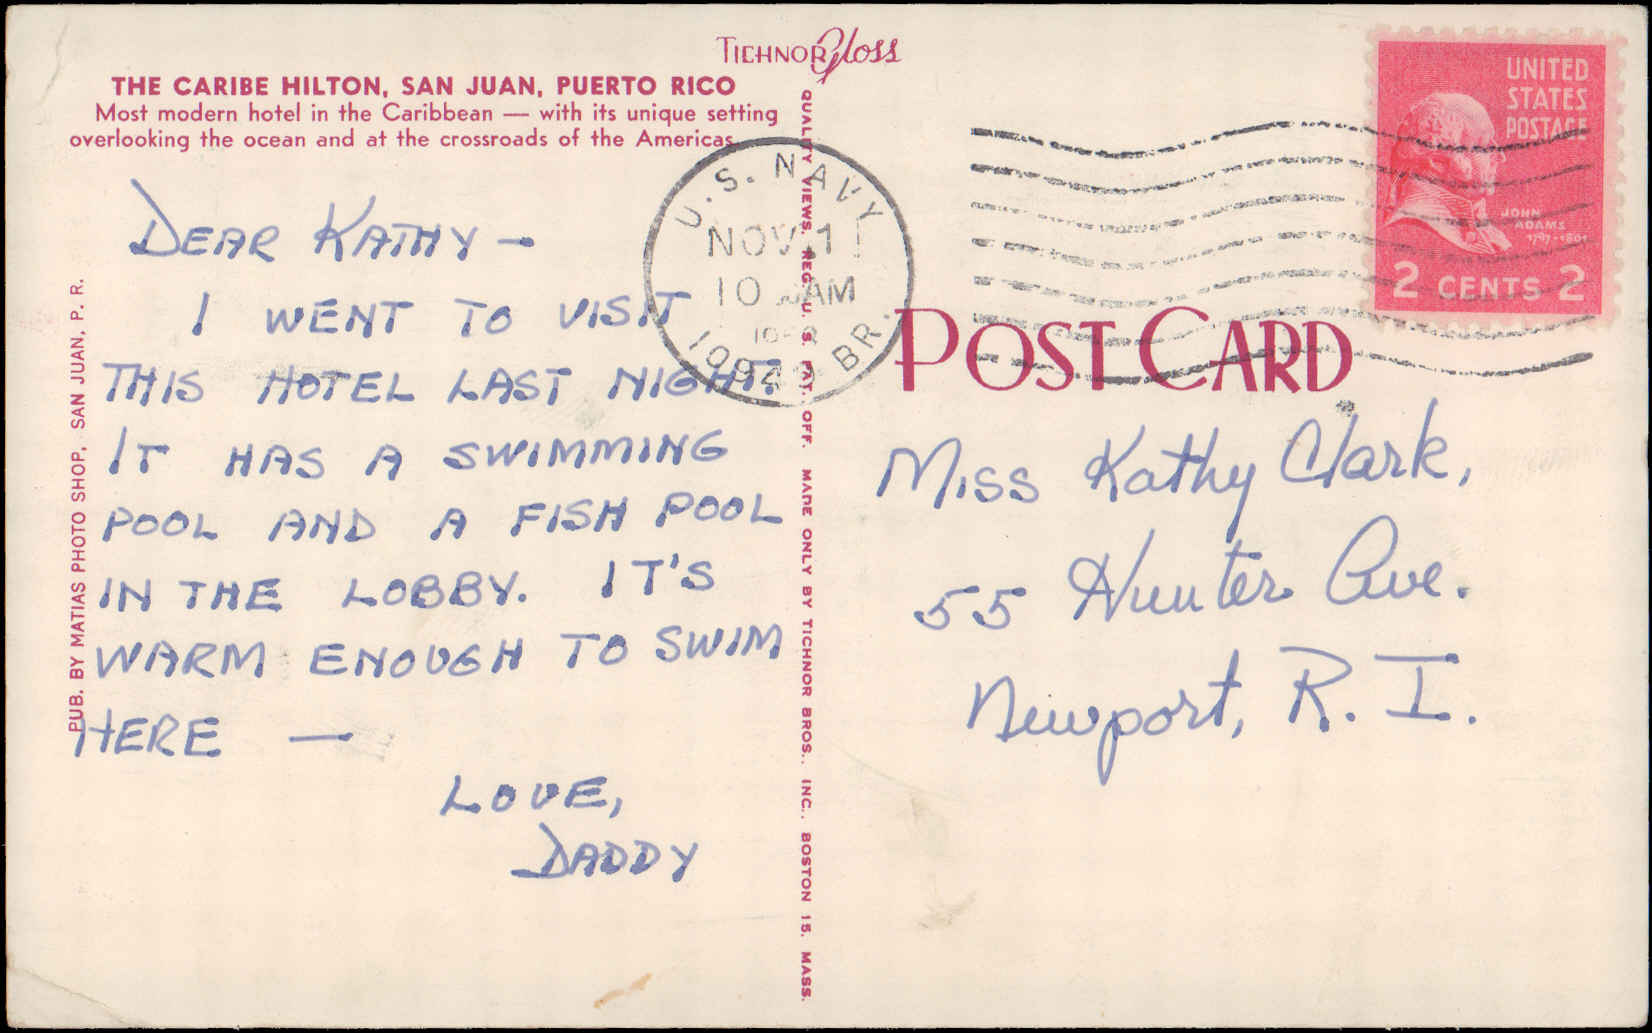 TICHNOR Gloss
THE CARIBE HILTON, SAN JUAN, PUERTO RICO
Most modern hotel in the Caribbean — with its unique setting
overlooking the ocean and at the crossroads of the Americas.
DEAR KATHY —
I WENT TO VISIT
THIS HOTEL LAST NIGHT.
IT HAS A SWIMMING
POOL AND A FISH POOL
IN THE LOBBY. IT'S
WARM ENOUGH TO SWIM
HERE —
LOVE,
DADDY
PUB. BY MATIAS PHOTO SHOP, SAN JUAN, P. R.
QUALITY VIEWS. REG. U. S. PAT. OFF. MADE ONLY BY TICHNOR BROS., INC., BOSTON 15, MASS.
U.S. NAVY
NOV 1
10 AM
BR.
UNITED
STATES
POSTAGE
JOHN
ADAMS
1797-1801
2 CENTS 2
POST CARD
Miss Kathy Clark,
55 Hunter Ave.
Newport, R. I.